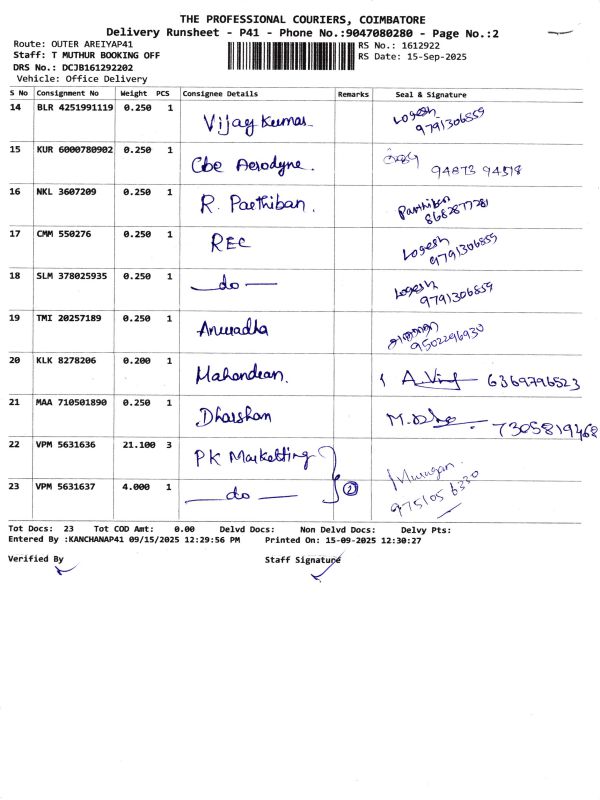 THE PROFESSIONAL COURIERS, COIMBATORE
Delivery Runsheet - P41 - Phone No.:9047080280 - Page No.:2
Route: OUTER AREIYAP41
RS No.: 1612922
Staff: T MUTHUR BOOKING OFF
RS Date: 15-Sep-2025
DRS No.: DCJB161292202
Vehicle: Office Delivery
S No Consignment No Weight PCS Consignee Details Remarks Seal & Signature
14 BLR 4251991119 0.250 1 Vijay Kumar Logesh
9791306859
15 KUR 6000780902 0.250 1 Cbe Aerodyne.
94873 94518
16 NKL 3607209 0.250 1 R. Parthiban. Parthiban
8682877281
17 CMM 550276 0.250 1 REC Logesh
9791306859
18 SLM 378025935 0.250 1 —do— Logesh
9791306859
19 TMI 20257189 0.250 1 Anuradha
9502296930
20 KLK 8278206 0.200 1 Mahendran. 6369796523
21 MAA 710501890 0.250 1 Dharshan 7305819468
22 VPM 5631636 21.100 3 PK Marketting Murugan.
975105 6330
23 VPM 5631637 4.000 1 —do— 2
Tot Docs: 23 Tot COD Amt: 0.00 Delvd Docs: Non Delvd Docs: Delvy Pts:
Entered By :KANCHANAP41 09/15/2025 12:29:56 PM Printed On: 15-09-2025 12:30:27
Verified By Staff Signature